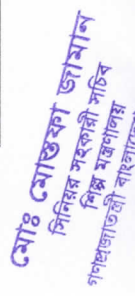 মোঃ মোস্তফা জামান
সিনিয়র সহকারী সচিব
শিল্প মন্ত্রণালয়
গণপ্রজাতন্ত্রী